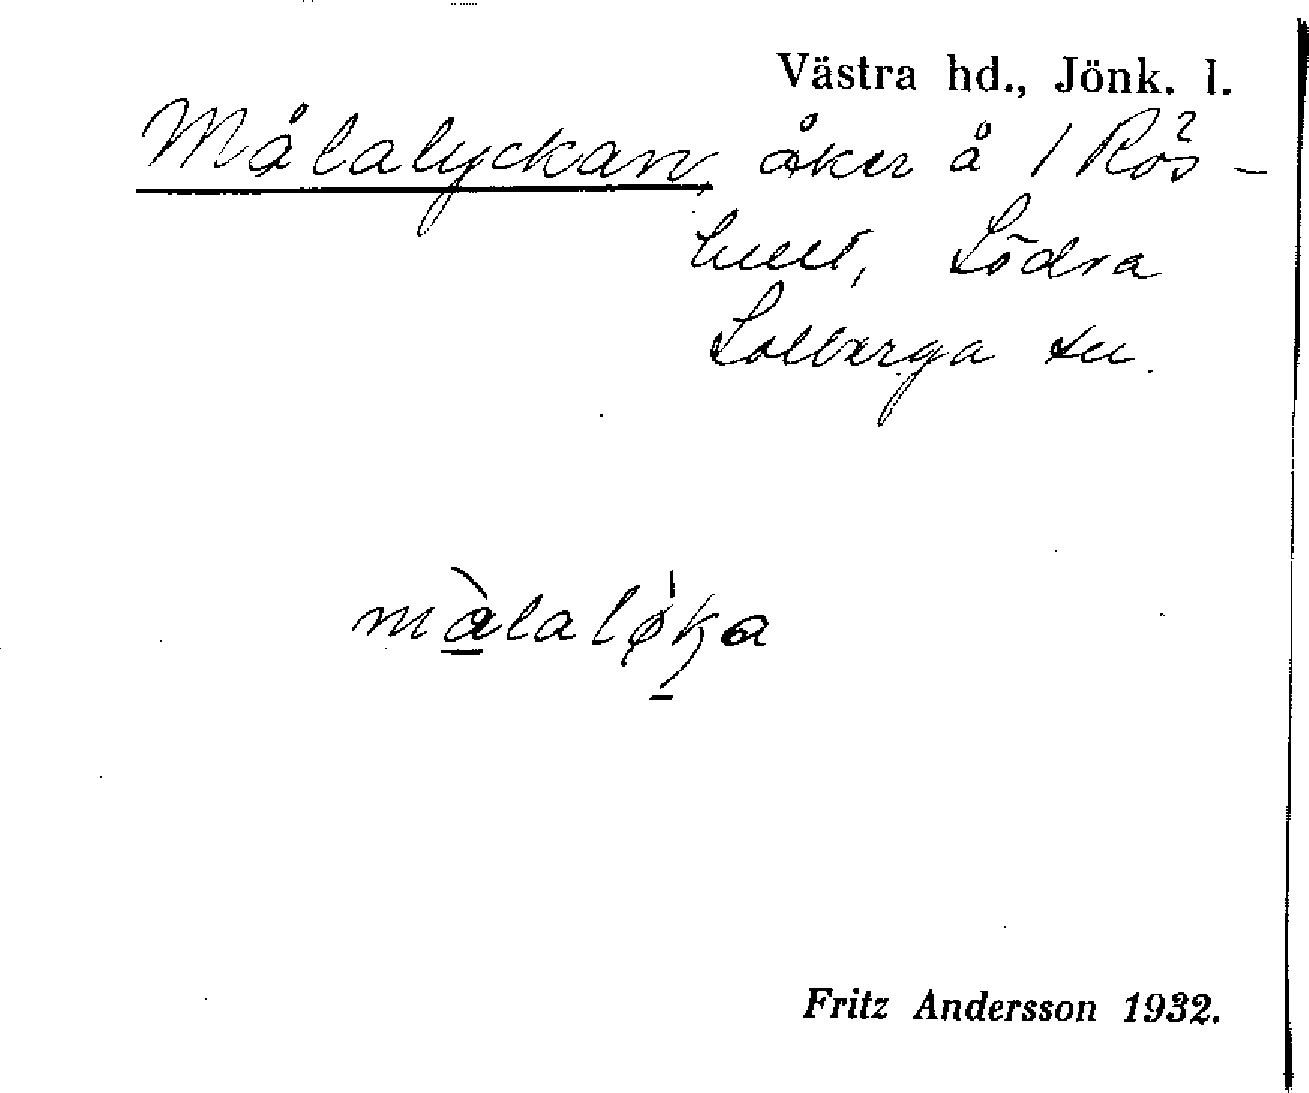 Västra hd., Jönk. l.
Målalyckan, åker å 1 Rös-
hult, Södra
Solberga sn.
màlaløka
Fritz Andersson 1932.